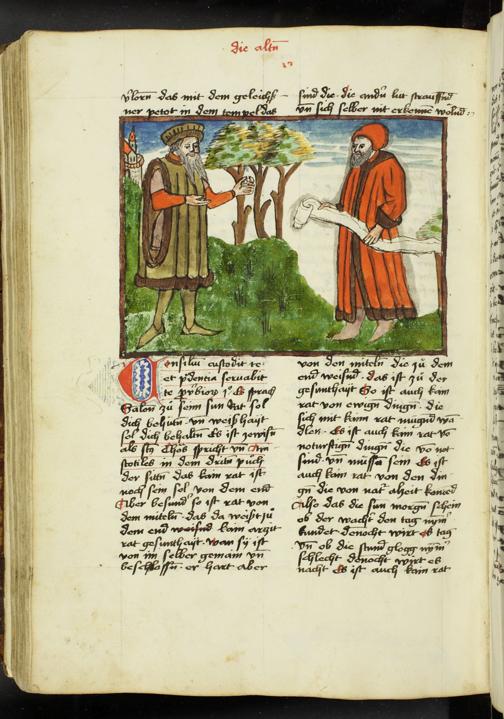 die altn
das mit dem gleichß
ner petot in dem tempel das
sind die die andn lut strauffnd
vn sich selber nit erkenne wolnd
Consiliu custodit te
et pdentia servabit
te pvbior 2 Es sprach
Salon zu seim sun Rat sol
dich behutn vn weißhayt
sol dich behaltn Es ist zewissn
als sty Thos spricht vn Aris
stotiles in dem dritn puch
der sittn das kain rat ist
noch sein sol von dem end
Aber besundr so ist rat von
dem miteln das da weißt zu
dem end kain
rat gesunthayt wan sy ist
von im selber gemain vn
beschlossn er hart aber
von den miteln die zu dem
end weisend das ist zu der
gesunthayt So ist auch kain
rat von ewign dingn die
sich mit kain rat mugnd wan
dlen Es ist auch kain rat vo
naturlichn dingn die vo not
sind vn mussn sein Es ist
auch kain rat von den din
gn die von natr
Also das die sun morgn schein
ob der wachtr den tag nym
kundet denocht wirt es tag
Vn ob die stund glogg nym
schlecht denocht wirt es
nacht Es ist auch kain rat